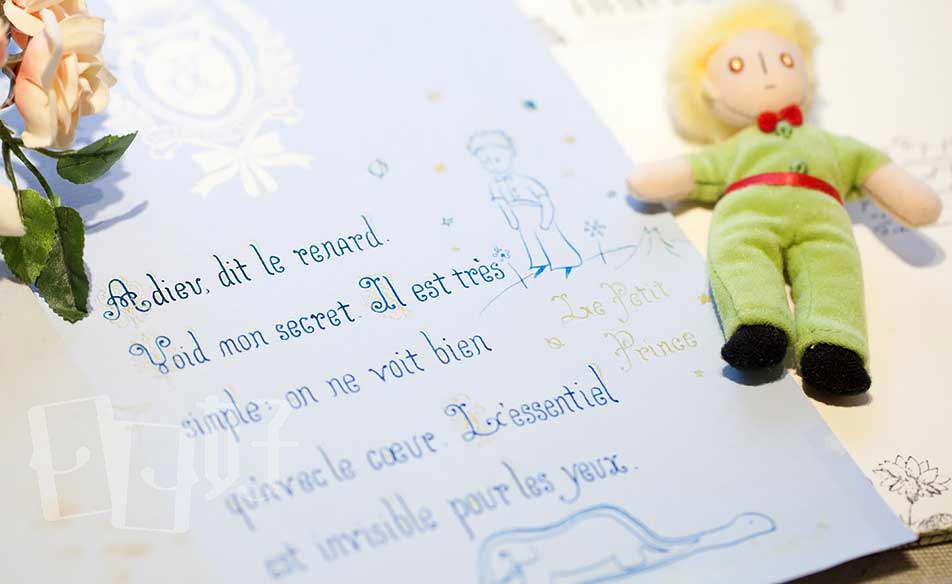 Adieu, dit le renard.
Void mon secret. Il est très
simple: on ne voit bien
qu'avec le cœur. L'essentiel
est invisible pour les yeux.
Le Petit
Prince